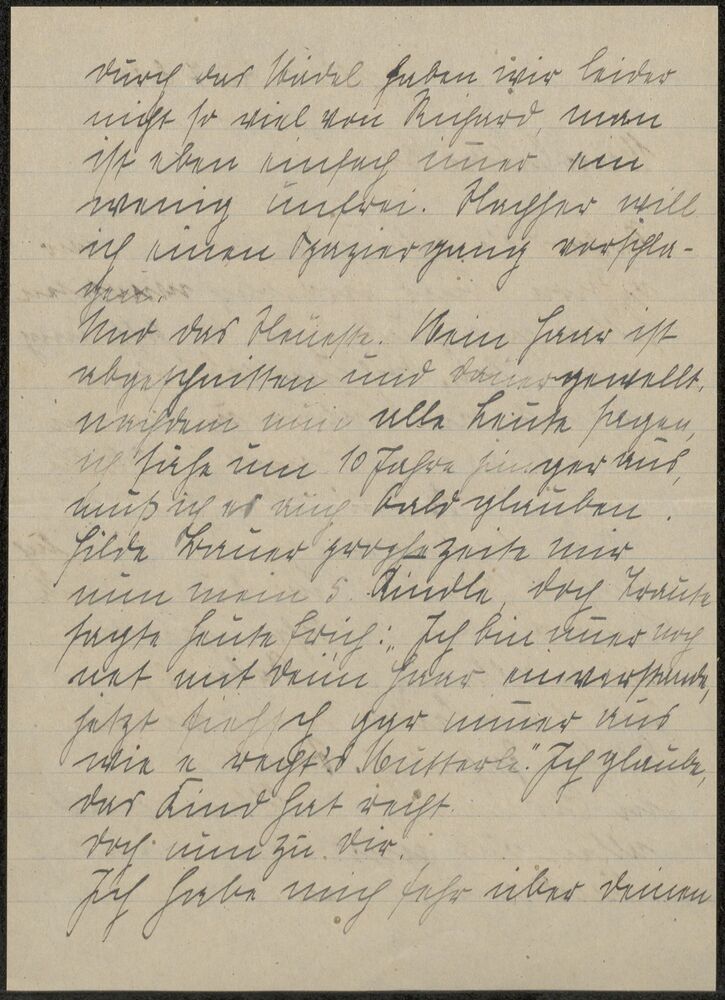 durch das Mädel haben wir leider
nicht so viel von Richard, man
ist eben einfach immer ein
wenig unfrei. Nachher will
ich einen Spaziergang vorschla-
gen.
Und das Neueste. Mein Haar ist
abgeschnitten und dauergewellt,
nachdem nun alle Leute sagen,
ich sähe um 10 Jahre jünger aus,
muß ich es auch bald glauben.
Hilde Bauer prophezeite mir
nun mein 5. Kindle, doch Traute
sagte heute früh: „Ich bin immer noch
net mit deim Haar einverstande,
jetzt siehsch gar nimmer aus
wie e recht's Mutterle." Ich glaube,
das Kind hat recht.
Doch nun zu Dir.
Ich habe mich sehr über Deinen